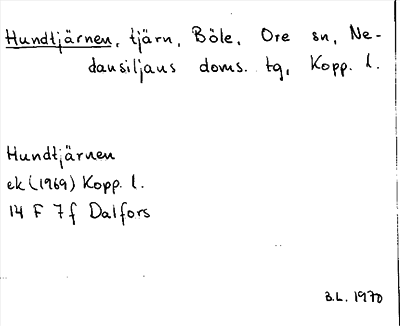 Hundtjärnen, tjärn, Böle, Ore sn, Ne-
dansiljans doms. tg, Kopp. l.
Hundtjärnen
ek (1969) Kopp. l.
14 F 7f Dalfors
B.L. 1970